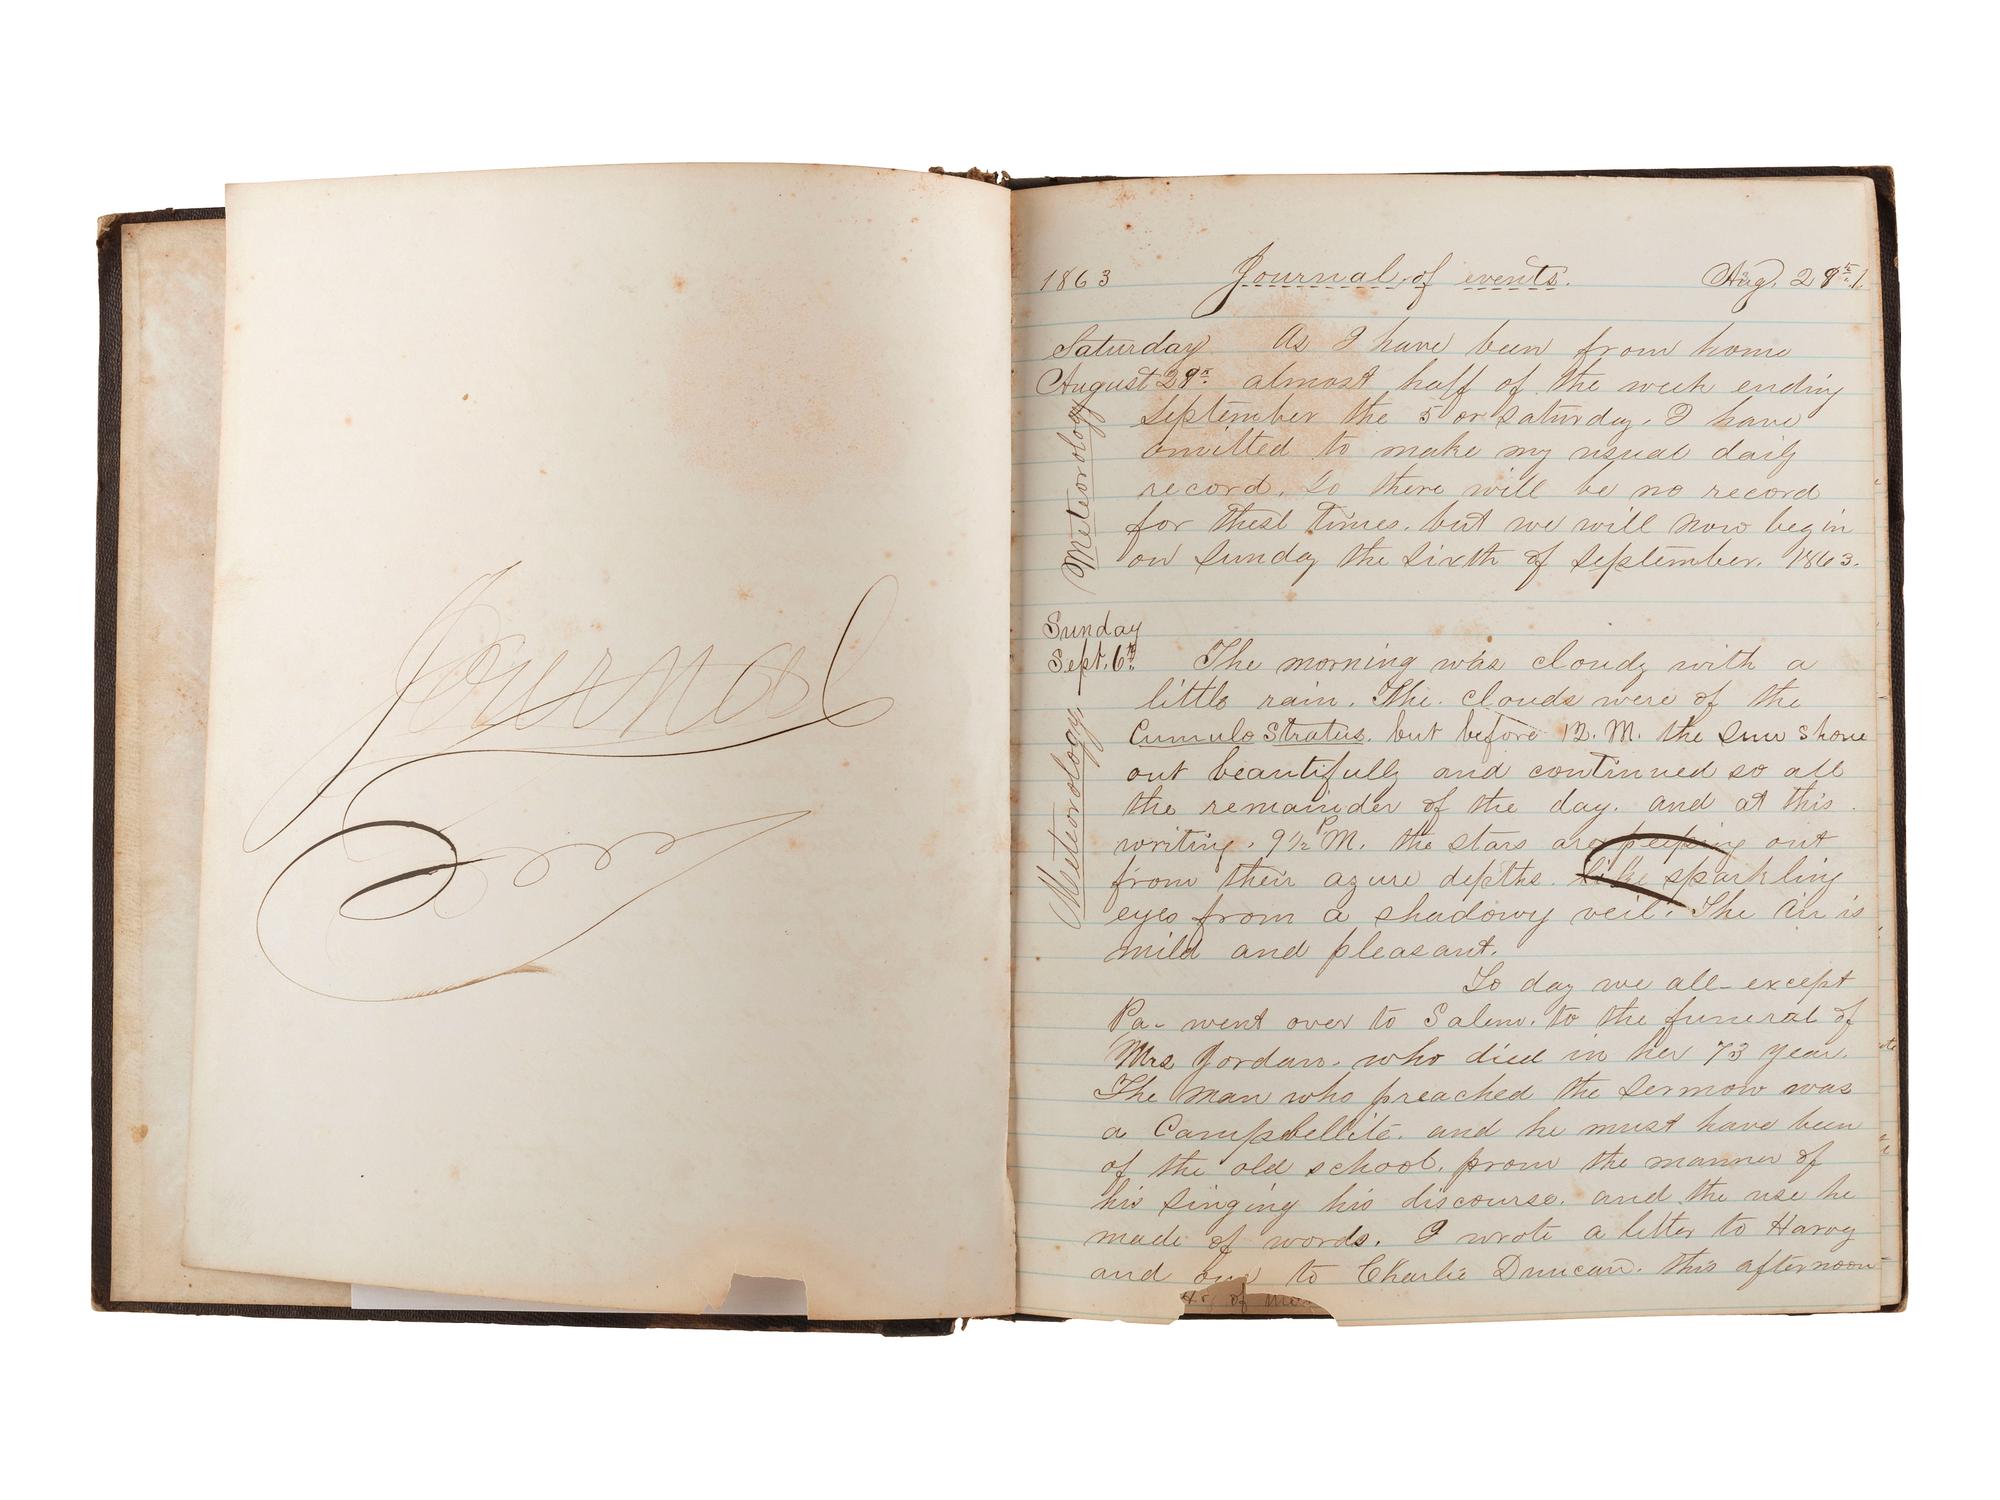 Journal
1863 Journal of events. Aug. 29th.
Saturday As I have been from home
August 29th. almost half of the week ending
September the 5 or Saturday, I have
omitted to make my usual daily
record. So there will be no record
for these times. but we will now begin
on Sunday the Sixth of September. 1863.
Meteorology
Sunday
Sept. 6th. The morning was cloudy with a
little rain. The clouds were of the
Cumulo Stratus. but before 12. M. the Sun shone
out beautifully and continued so all
the remainder of the day. and at this
writing. 9 1/2 P M. the stars are peeping out
from their azure depths. like sparkling
eyes from a shadowy veil. The air is
mild and pleasant.
Meteorology
To day we all - except
Pa - went over to Salem. to the funeral of
Mrs Jordan. who died in her 73 year.
The man who preached the Sermon was
a Campbellite. and he must have been
of the old school. from the manner of
his singing his discourse. and the use he
made of words. I wrote a letter to Harvy
and one to Charlie Duncan. this afternoon
of